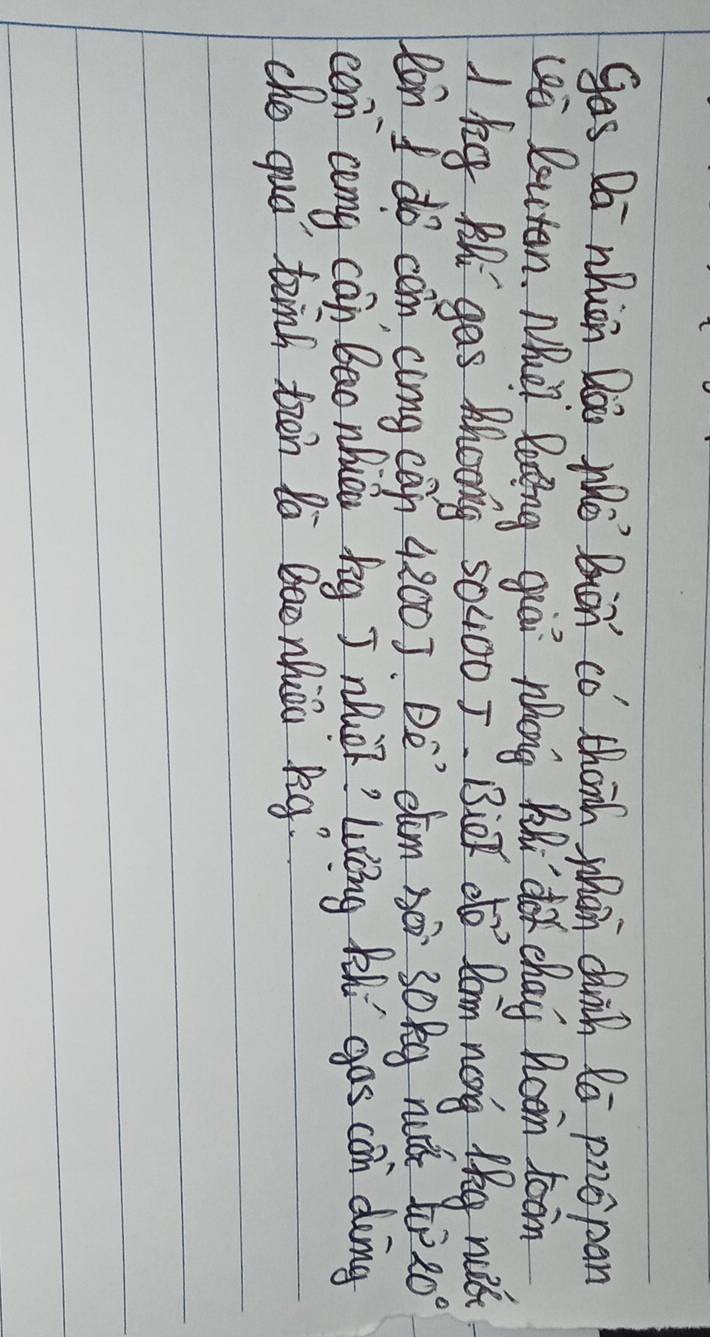 Gas là nhiên liệu phổ biến có thành phần chính là prôpan
và butan. Nhiệt lượng giải phóng khi đốt cháy hoàn toàn
1 kg khí gas khoảng 50400 J. Biết để làm nóng 1kg nước
lên 1 độ cần cung cấp 4200J. Để đun sôi 30kg nước từ 20°
cần cung cấp bao nhiêu kg J nhiệt? Lượng khí gas cần dùng
cho quá trình trên là bao nhiêu kg?